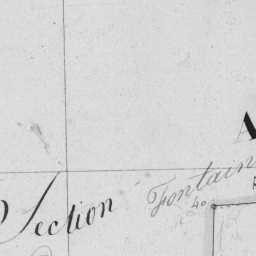 A
Fontain
40
Section